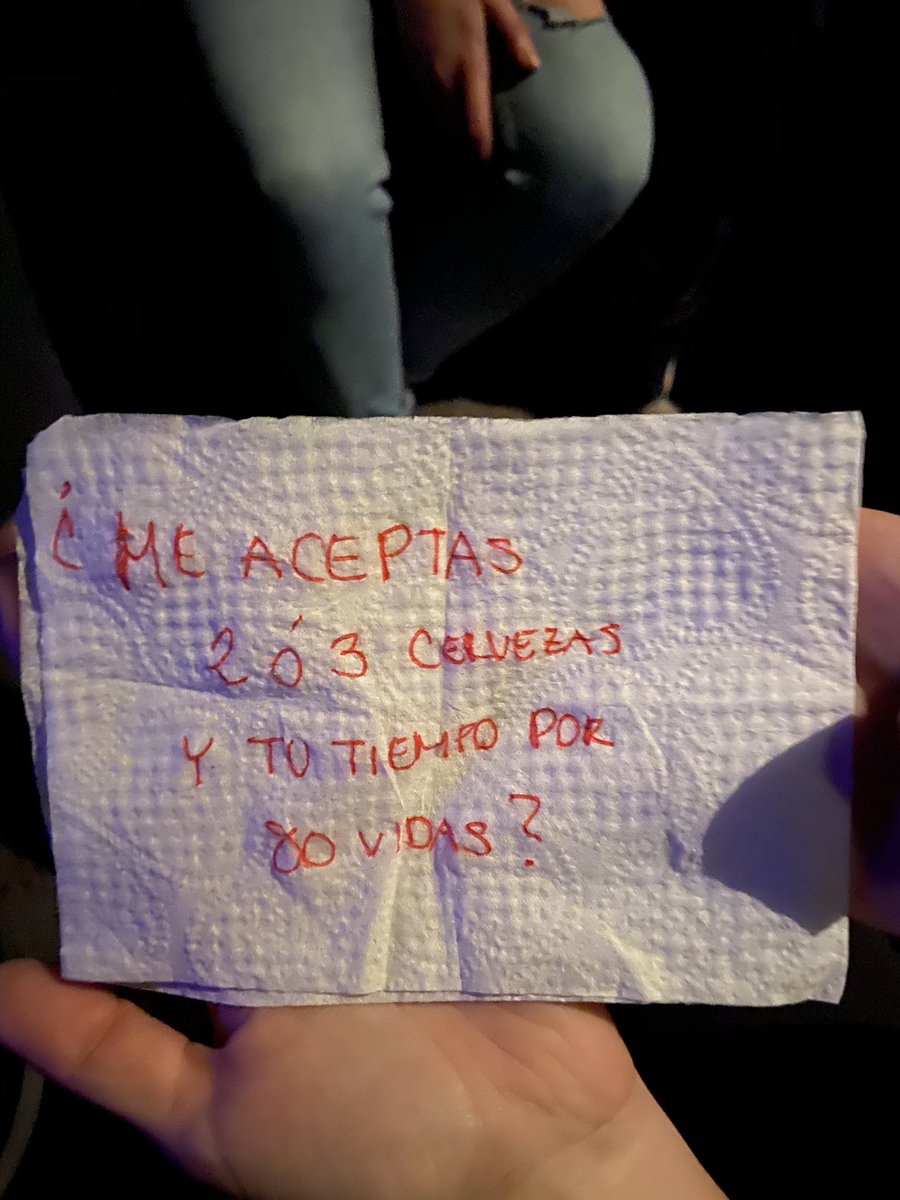 ¿ ME ACEPTAS
2 Ó 3 CERVEZAS
Y TU TIEMPO POR
80 VIDAS?